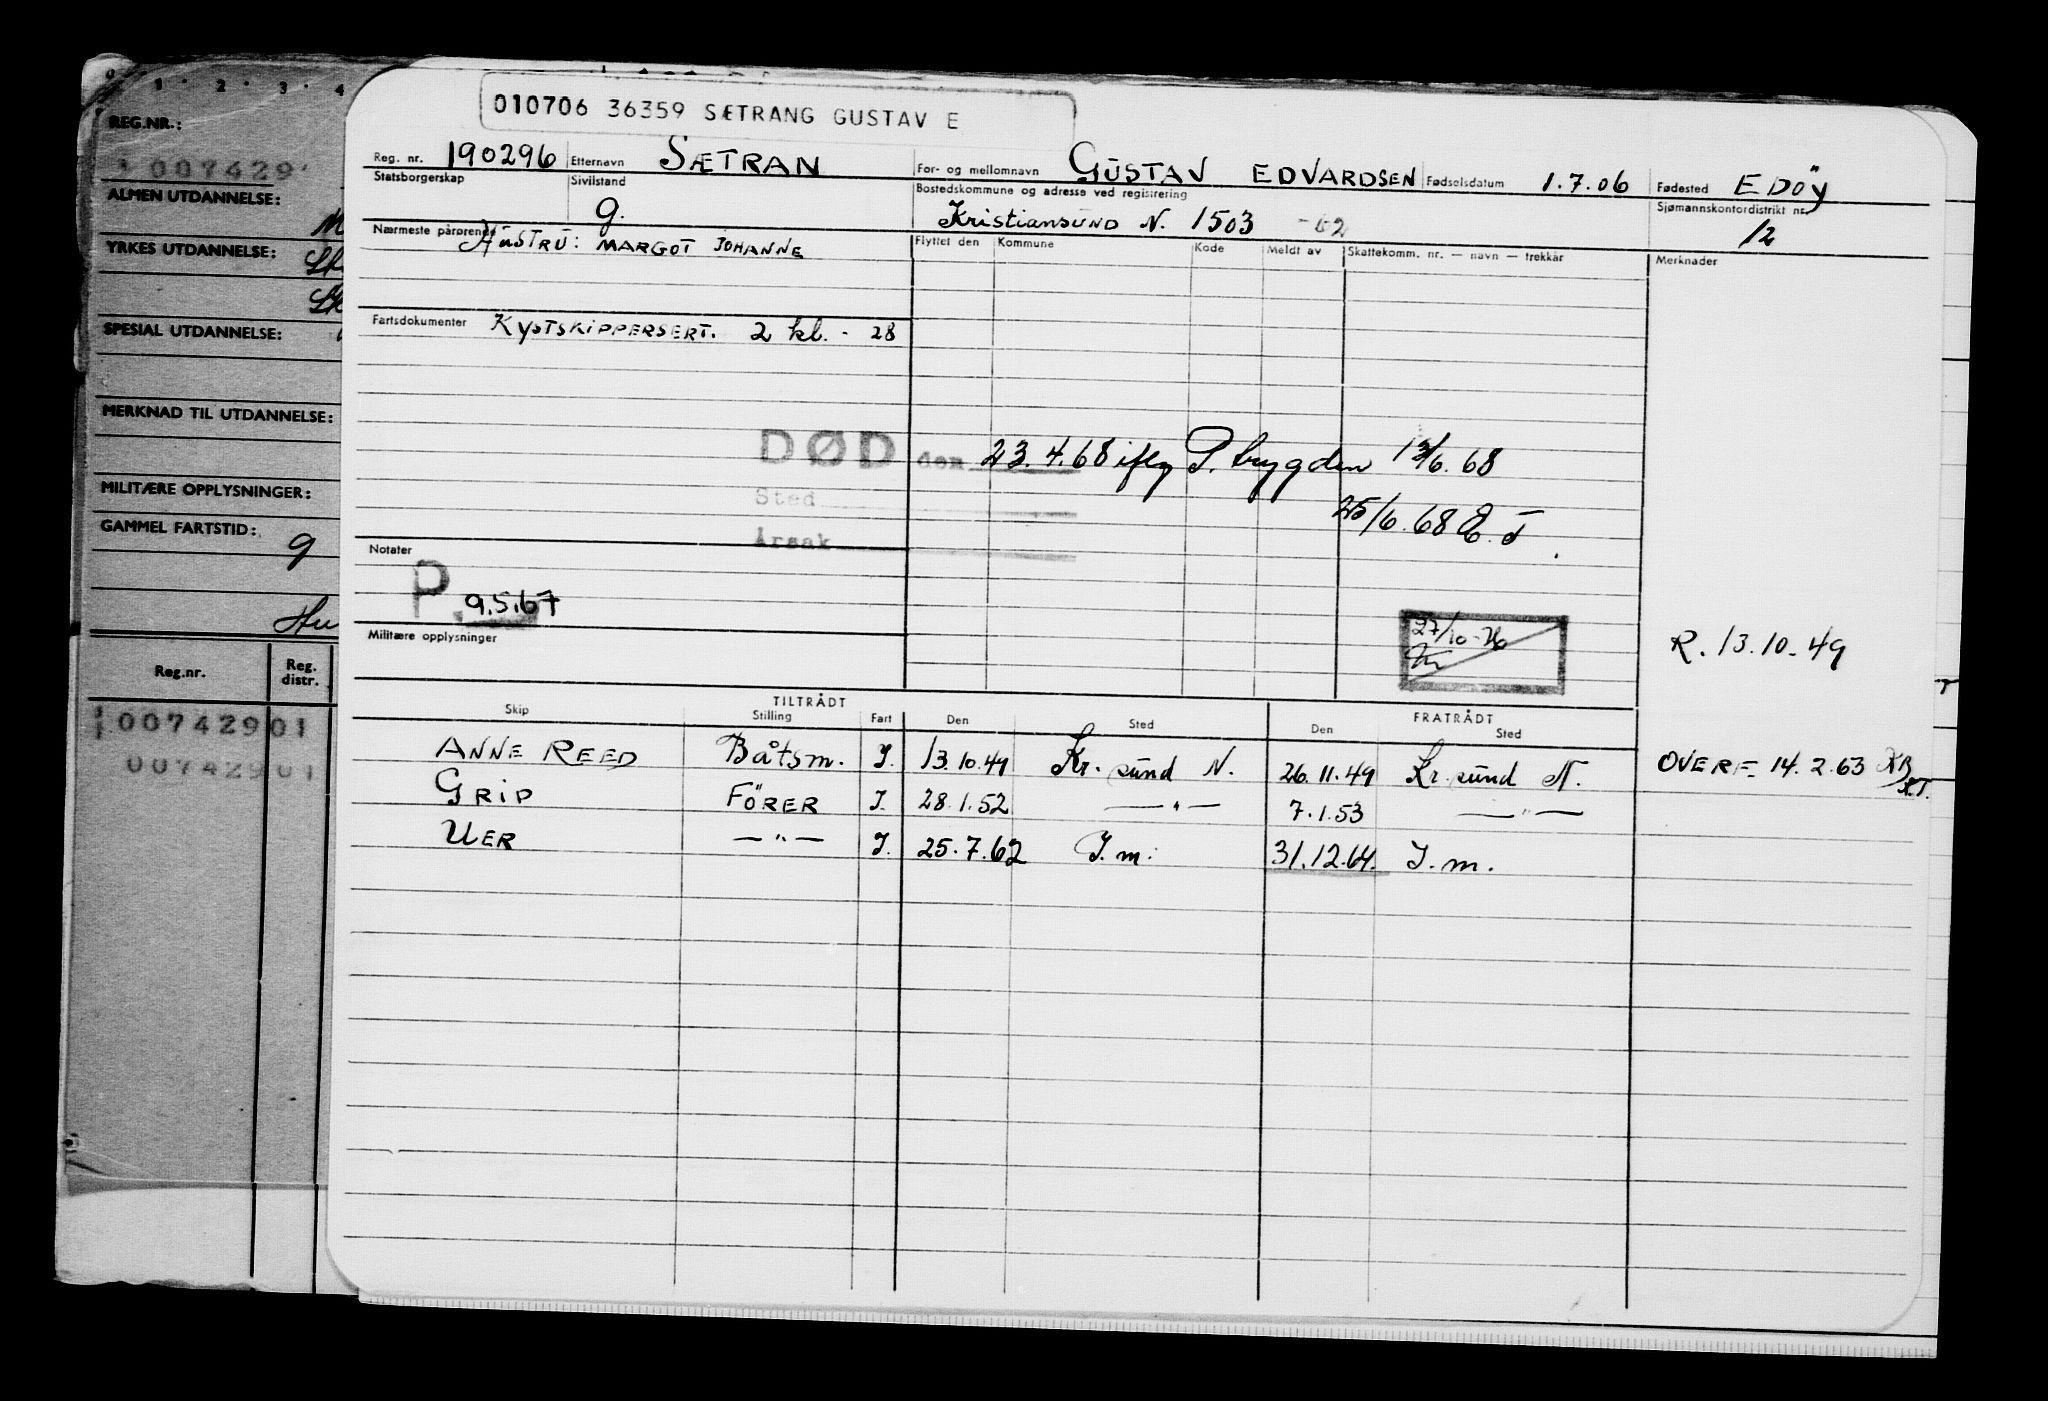 010706 36359 SÆTRANG GUSTAV E
Reg. nr. 190296 Etternavn SÆTRAN For- og mellomnavn GUSTAV EDVARDSEN Fødselsdatum 1.7.06 Fødested EDÖY
Statsborgerskap Sivilstand g. Bostedskommune og adresse ved registrering Kristiansund N. 1503 Sjømannskontordistrikt nr. 12
Nærmeste pårørende Hustru: MARGOT JOHANNE Flyttet den Kommune Kode Meldt av Skattekomm. nr. — navn — trekkår Merknader
Fartsdokumenter KYSTSKIPPERSERT. 2 kl. - 28
DØD den 23.4.68 iflg P. trygden 12/6.68
Sted 25/6.68
Årsak
Notater
P. 9.5.67
27/10-76
R. 13.10.49
Militære opplysninger
TILTRÅDT FRATRÅDT
Skip Stilling Fart Den Sted Den Sted
ANNE REED Båtsm. I. 13.10.49 Kr. sund N. 26.11.49 Kr. sund N. OVERF 14.2.63
GRIP FÖRER I. 28.1.52 — " — 7.1.53 — " —
UER — " — I. 25.7.62 I.m. 31.12.64. I.m.
0 1 2 3 4
REG.NR.:
007429
ALMEN UTDANNELSE:
YRKES UTDANNELSE:
SPESIAL UTDANNELSE:
MERKNAD TIL UTDANNELSE:
MILITÆRE OPPLYSNINGER:
GAMMEL FARTSTID:
g
Reg.nr. Reg. distr.
00742901
00742901